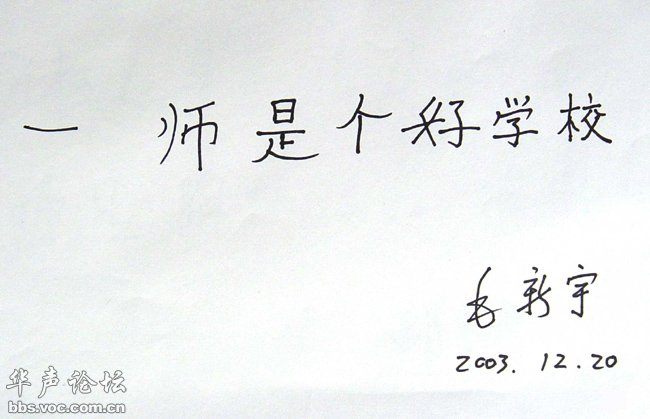 一师是个好学校
毛新宇
2003.12.20
华声论坛
bbs.voc.com.cn